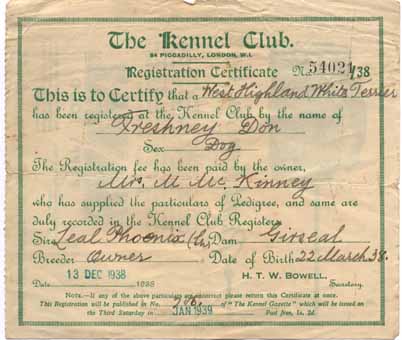 The Kennel Club.
84 PICCADILLY, LONDON, W.1.
Registration Certificate No 54021/38
This is to Certify that a West Highland White Terrier
has been registered at the Kennel Club by the name of
Freshney Don
Sex Dog
The Registration fee has been paid by the owner,
Mrs. M. Mc. Kinney
who has supplied the particulars of Pedigree, and same are
duly recorded in the Kennel Club Registers.
Sire Leal Phoenix (Ch) Dam Girseal
Breeder Owner Date of Birth 22 March 38.
13 DEC 1938 H. T. W. BOWELL,
Date 1938 Secretary.
NOTE.—If any of the above particulars are incorrect please return this Certificate at once.
This Registration will be published in No. of "The Kennel Gazette" which will be issued on
the Third Saturday in JAN 1939 Post free, 1s. 2d.